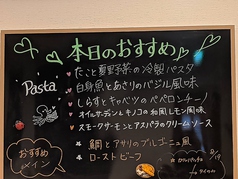 本日のおすすめ
Pasta
たこと夏野菜の冷製パスタ
白身魚とあさりのバジル風味
しらすとキャベツのペペロンチーノ
オイルサーディンとキノコの和風レモン風味
スモークサーモンとアスパラのクリームソース
おすすめメイン
鯛とアサリのブルゴーニュ風
ローストビーフ